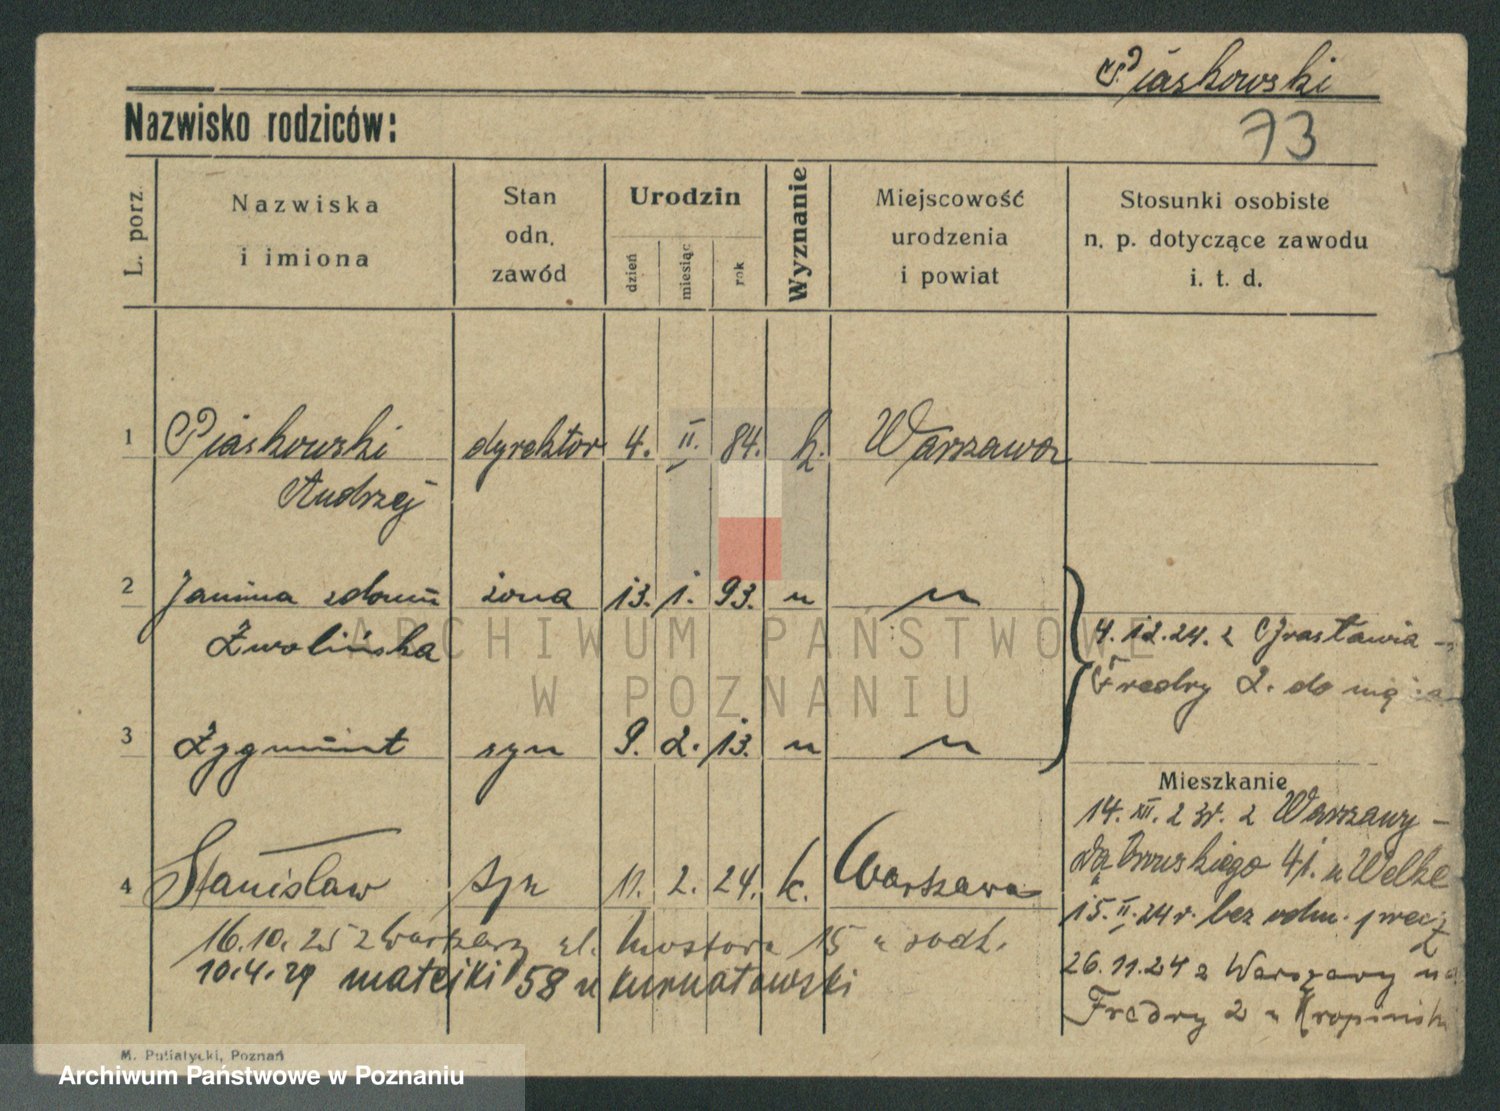 Piaskowski
Nazwisko rodziców:
73
L. porz.
Nazwiska
i imiona
Stan
odn.
zawód
Urodzin
dzień
miesiąc
rok
Wyznanie
Miejscowość
urodzenia
i powiat
Stosunki osobiste
n. p. dotyczące zawodu
i. t. d.
1 Piaskowski dyrektor 4. II. 84. k. Warszawa
Andrzej
2 Janina z domu żona 13. 1. 93. " "
Zwolińska
4.12.24. z
Fredry 2. do męża
3 Zygmunt syn 9. 2. 13. " "
Mieszkanie
14. XII. 23r. z Warszawy –
Dąbrowskiego 41. u Welke
4 Stanisław syn 11. 2. 24. k. Warszawa
15. II. 24 r. bez odm. precz
16.10.25 z Warszawy ul. 15 u
26.11.24 z Warszawy na
10.4.29 matejki 58 u kurnatowski
Fredry 2 u
M. Putiatycki, Poznań
ARCHIWUM PAŃSTWOWE
W POZNANIU
Archiwum Państwowe w Poznaniu